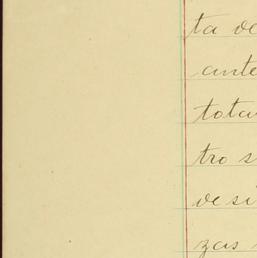 ta de
ante
tota
tro s
de si
zas